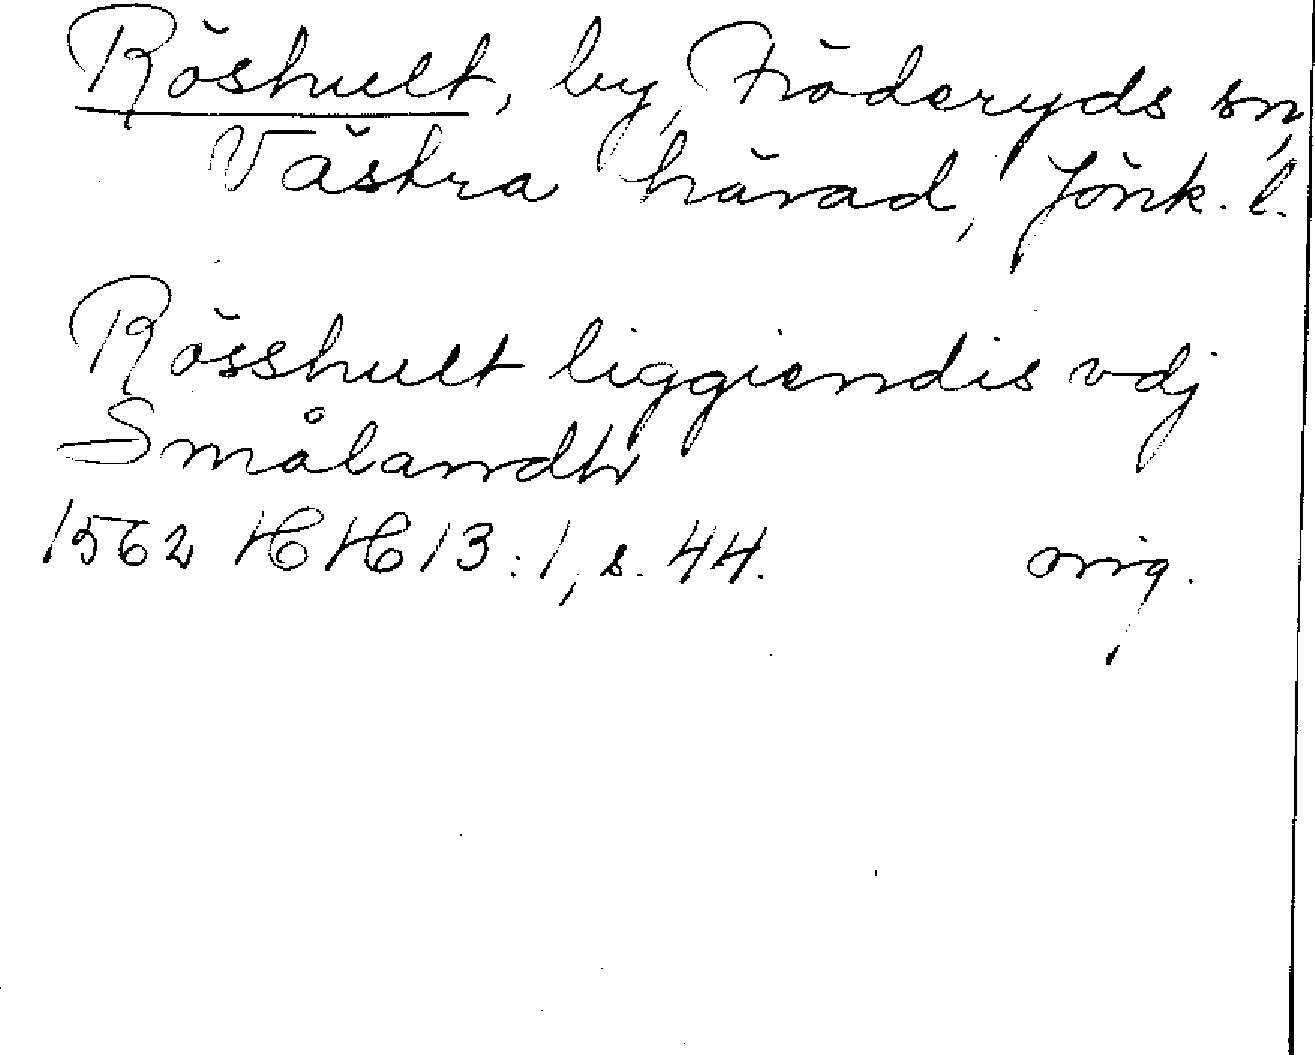 Röshult, by, Fröderyds sn,
Västra härad, Jönk. l.
Rösshult liggiendis vdj
Smålandh
1562 HH 13:1, s. 44. orig.